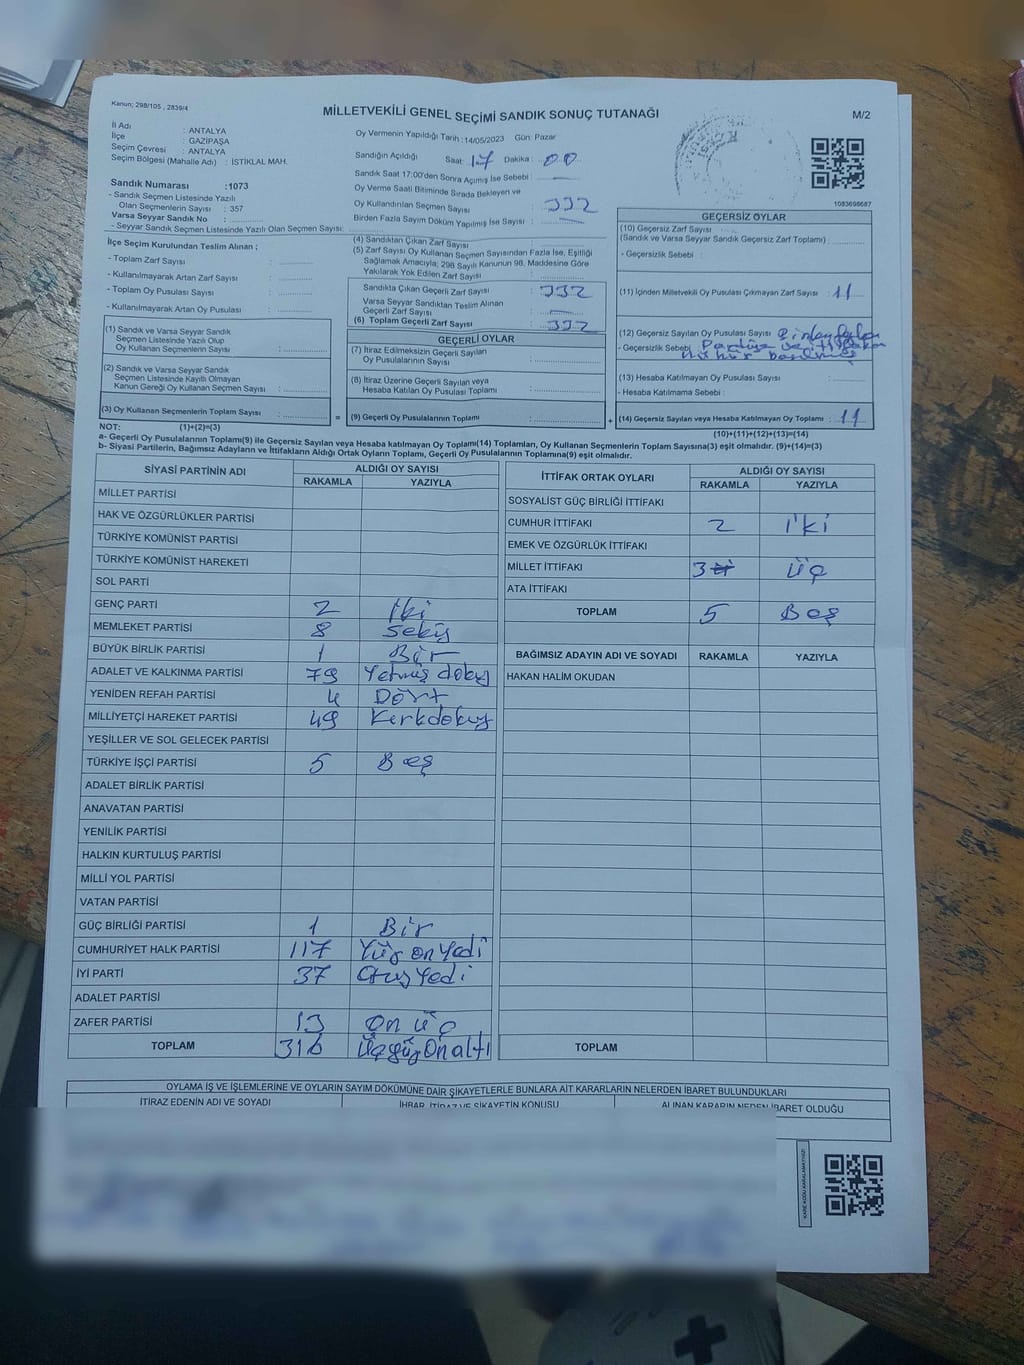 Kanun; 298/105 , 2839/4
MİLLETVEKİLİ GENEL SEÇİMİ SANDIK SONUÇ TUTANAĞI
M/2
İl Adı : ANTALYA
İlçe : GAZİPAŞA
Seçim Çevresi : ANTALYA
Seçim Bölgesi (Mahalle Adı) : İSTİKLAL MAH.
Sandık Numarası :1073
- Sandık Seçmen Listesinde Yazılı
Olan Seçmenlerin Sayısı : 357
Varsa Seyyar Sandık No :
- Seyyar Sandık Seçmen Listesinde Yazılı Olan Seçmen Sayısı:
Oy Vermenin Yapıldığı Tarih :14/05/2023 Gün: Pazar
Sandığın Açıldığı Saat: 17 Dakika : 00
Sandık Saat 17:00'den Sonra Açımış İse Sebebi :
Oy Verme Saati Bitiminde Sırada Bekleyen ve
Oy Kullandırılan Seçmen Sayısı : 332
Birden Fazla Sayım Döküm Yapılmış İse Sayısı :
1083698687
İlçe Seçim Kurulundan Teslim Alınan ;
- Toplam Zarf Sayısı :
- Kullanılmayarak Artan Zarf Sayısı :
- Toplam Oy Pusulası Sayısı :
- Kullanılmayarak Artan Oy Pusulası :
(1) Sandık ve Varsa Seyyar Sandık
Seçmen Listesinde Yazılı Olup
Oy Kullanan Seçmenlerin Sayısı :
(2) Sandık ve Varsa Seyyar Sandık
Seçmen Listesinde Kayıtlı Olmayan
Kanun Gereği Oy Kullanan Seçmen Sayısı :
(3) Oy Kullanan Seçmenlerin Toplam Sayısı :
(4) Sandıktan Çıkan Zarf Sayısı :
(5) Zarf Sayısı Oy Kullanan Seçmen Sayısından Fazla İse, Eşitliği
Sağlamak Amacıyla; 298 Sayılı Kanunun 98. Maddesine Göre
Yakılarak Yok Edilen Zarf Sayısı :
Sandıkta Çıkan Geçerli Zarf Sayısı : 332
Varsa Seyyar Sandıktan Teslim Alınan
Geçerli Zarf Sayısı :
(6) Toplam Geçerli Zarf Sayısı : 332
GEÇERLİ OYLAR
(7) İtiraz Edilmeksizin Geçerli Sayılan
Oy Pusulalarının Sayısı :
(8) İtiraz Üzerine Geçerli Sayılan veya
Hesaba Katılan Oy Pusulası Toplamı :
= (9) Geçerli Oy Pusulalarının Toplamı : +
GEÇERSİZ OYLAR
(10) Geçersiz Zarf Sayısı
(Sandık ve Varsa Seyyar Sandık Geçersiz Zarf Toplamı) :
- Geçersizlik Sebebi :
(11) İçinden Milletvekili Oy Pusulası Çıkmayan Zarf Sayısı : 11
(12) Geçersiz Sayılan Oy Pusulası Sayısı Birden fazla
- Geçersizlik Sebebi Partiye ve ittifaka
mühür basılmış
(13) Hesaba Katılmayan Oy Pusulası Sayısı :
- Hesaba Katılmama Sebebi :
(14) Geçersiz Sayılan veya Hesaba Katılmayan Oy Toplamı : 11
NOT: (1)+(2)=(3)
(10)+(11)+(12)+(13)=(14)
a- Geçerli Oy Pusulalarının Toplamı(9) ile Geçersiz Sayılan veya Hesaba katılmayan Oy Toplamı(14) Toplamları, Oy Kullanan Seçmenlerin Toplam Sayısına(3) eşit olmalıdır. (9)+(14)=(3)
b- Siyasi Partilerin, Bağımsız Adayların ve İttifakların Aldığı Ortak Oyların Toplamı, Geçerli Oy Pusulalarının Toplamına(9) eşit olmalıdır.
SİYASİ PARTİNİN ADI ALDIĞI OY SAYISI
RAKAMLA YAZIYLA
MİLLET PARTİSİ
HAK VE ÖZGÜRLÜKLER PARTİSİ
TÜRKİYE KOMÜNİST PARTİSİ
TÜRKİYE KOMÜNİST HAREKETİ
SOL PARTİ
GENÇ PARTİ 2 İki
MEMLEKET PARTİSİ 8 Sekiz
BÜYÜK BİRLİK PARTİSİ 1 Bir
ADALET VE KALKINMA PARTİSİ 79 Yetmiş dokuz
YENİDEN REFAH PARTİSİ 4 Dört
MİLLİYETÇİ HAREKET PARTİSİ 49 Kırkdokuz
YEŞİLLER VE SOL GELECEK PARTİSİ
TÜRKİYE İŞÇİ PARTİSİ 5 Beş
ADALET BİRLİK PARTİSİ
ANAVATAN PARTİSİ
YENİLİK PARTİSİ
HALKIN KURTULUŞ PARTİSİ
MİLLİ YOL PARTİSİ
VATAN PARTİSİ
GÜÇ BİRLİĞİ PARTİSİ 1 Bir
CUMHURİYET HALK PARTİSİ 117 Yüz on yedi
İYİ PARTİ 37 Otuz Yedi
ADALET PARTİSİ
ZAFER PARTİSİ 13 On üç
TOPLAM 316 Üçyüz Onaltı
İTTİFAK ORTAK OYLARI ALDIĞI OY SAYISI
RAKAMLA YAZIYLA
SOSYALİST GÜÇ BİRLİĞİ İTTİFAKI
CUMHUR İTTİFAKI 2 iki
EMEK VE ÖZGÜRLÜK İTTİFAKI
MİLLET İTTİFAKI 3 üç
ATA İTTİFAKI
TOPLAM 5 Beş
BAĞIMSIZ ADAYIN ADI VE SOYADI RAKAMLA YAZIYLA
HAKAN HALİM OKUDAN
TOPLAM
OYLAMA İŞ VE İŞLEMLERİNE VE OYLARIN SAYIM DÖKÜMÜNE DAİR ŞİKAYETLERLE BUNLARA AİT KARARLARIN NELERDEN İBARET BULUNDUKLARI
İTİRAZ EDENİN ADI VE SOYADI İHBAR, İTİRAZ VE ŞİKAYETİN KONUSU ALINAN KARARIN NEDEN İBARET OLDUĞU
KARE KODU KARALAMAYINIZ!